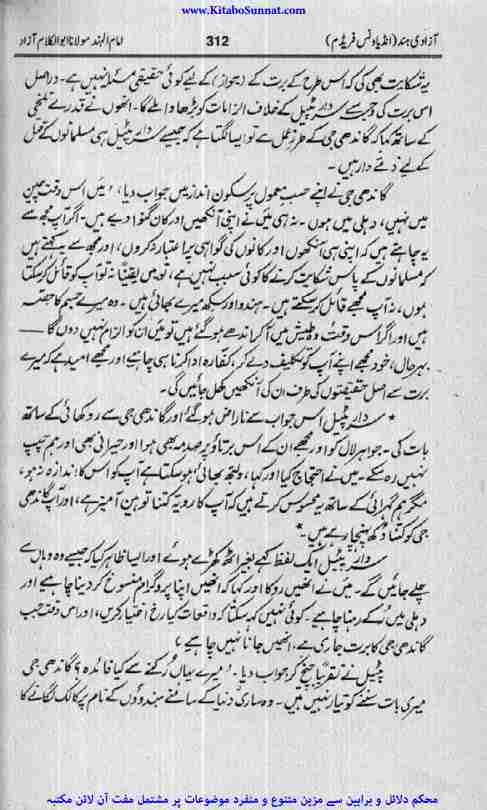 www.KitaboSunnat.com
آزادی ہند (انڈیا ونس فریڈم) 312 امام الہند مولانا ابوالکلام آزاد
یہ شکایت بھی کی کہ اس طرح کے برت کے (جواز) کے لیے کوئی حقیقی مسئلہ نہیں ہے۔ دراصل
اسی برت کی وجہ سے سردار پٹیل کے خلاف الزامات کو بڑھاوا ملے گا۔ انھوں نے قدرے تلخی
کے ساتھ کہا کہ گاندھی جی کے طرزِ عمل سے تو ایسا لگتا ہے کہ جیسے سردار پٹیل ہی مسلمانوں کے قتل
کے لیے ذمے دار ہیں۔
گاندھی جی نے اپنے حسبِ معمول پر سکون انداز میں جواب دیا، 'میں اس وقت چین
میں نہیں، دہلی میں ہوں۔ نہ ہی میں نے اپنی آنکھیں اور کان گنوا دیے ہیں۔ اگر آپ مجھ سے
یہ چاہتے ہیں کہ اپنی ہی آنکھوں اور کانوں کی گواہی پر اعتبار نہ کروں، اور مجھ سے یہ کہتے ہیں
کہ مسلمانوں کے پاس شکایت کرنے کا کوئی سبب نہیں ہے، تو میں یقیناً نہ تو آپ کو قائل کر سکتا
ہوں، نہ آپ مجھے قائل کر سکتے ہیں۔ ہندو اور سکھ میرے بھائی ہیں۔ وہ میرے جسم کا حصہ
ہیں اور اگر اس وقت وہ طیش میں آ کر اندھے ہو گئے ہیں تو میں ان کو الزام نہیں دوں گا ——
بہرحال، خود مجھے اپنے آپ کو تکلیف دے کر، کفارہ ادا کرنا ہی چاہیے اور مجھے امید ہے کہ میرے
برت سے اصل حقیقتوں کی طرف ان کی آنکھیں کھل جائیں گی۔
* سردار پٹیل اس جواب سے ناراض ہو گئے اور گاندھی جی سے روکھائی کے ساتھ
بات کی۔ جواہر لال کو اور مجھے ان کے اس برتاؤ پر صدمہ بھی ہوا اور حیرانی بھی اور ہم چپ
نہیں رہ سکے۔ میں نے احتجاج کیا اور کہا، ولبھ بھائی! ہو سکتا ہے آپ کو اس کا اندازہ نہ ہو،
مگر ہم گہرائی کے ساتھ یہ محسوس کرتے ہیں کہ آپ کا رویہ کتنا توہین آمیز ہے، اور آپ گاندھی
جی کو کتنا دکھ پہنچا رہے ہیں۔ *
سردار پٹیل ایک لفظ کہے بغیر اٹھ کھڑے ہوئے اور ایسا ظاہر کیا کہ جیسے وہ وہاں سے
چلے جائیں گے۔ میں نے انھیں روکا اور کہا کہ انھیں اپنا پروگرام منسوخ کر دینا چاہیے اور
دہلی میں رکے رہنا چاہیے۔ کوئی نہیں کہہ سکتا کہ واقعات کیا رخ اختیار کریں، اور اس وقت جب
گاندھی جی کا برت جاری ہے، انھیں جانا نہیں چاہیے،
پٹیل نے تقریباً چیخ کر جواب دیا۔ 'میرے یہاں رکنے سے کیا فائدہ؟ گاندھی جی
میری بات سننے کو تیار نہیں ہیں۔ وہ ساری دنیا کے سامنے ہندوؤں کے نام پر کالک لگانے کا
محکم دلائل و براہین سے مزین متنوع و منفرد موضوعات پر مشتمل مفت آن لائن مکتبہ